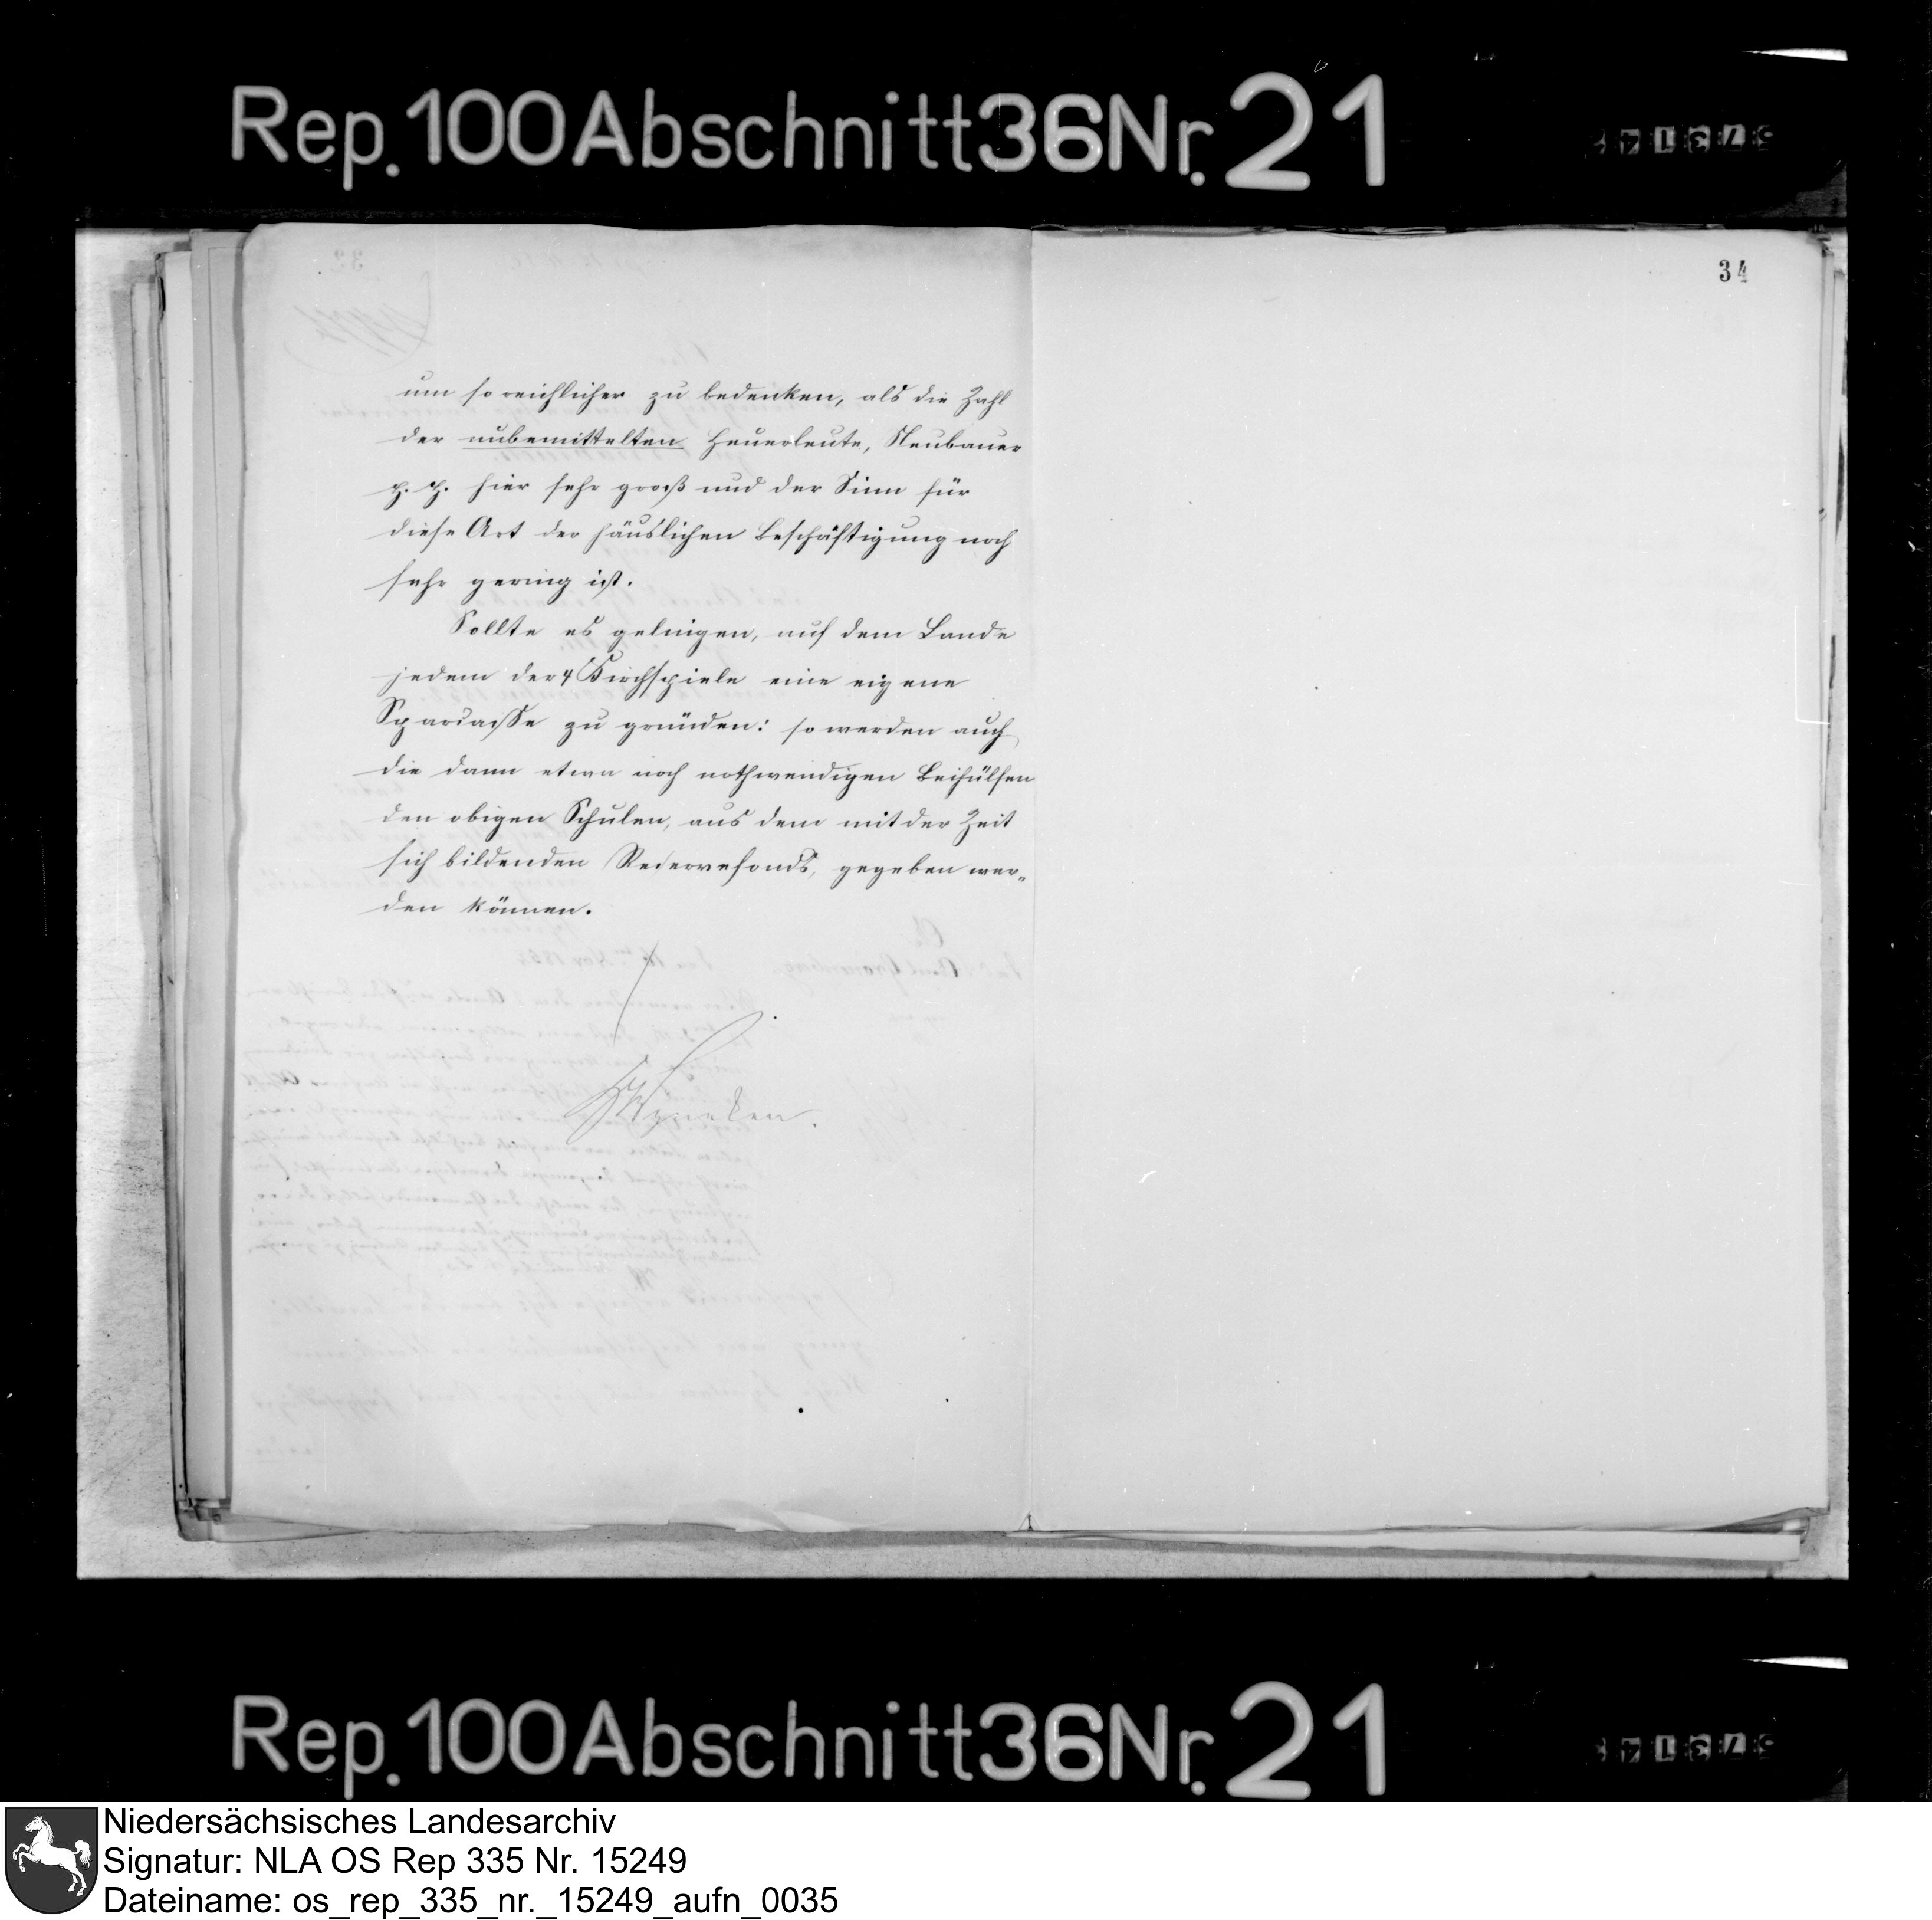 Rep. 100 Abschnitt 36 Nr. 21
34
um so reichlicher zu bedenken, als die Zahl
der unbemittelten Heuerleute, Neubauer
p. p. hier sehr groß und der Sinn für
diese Art der häuslichen Beschäftigung noch
sehr gering ist.
Sollte es gelingen, auf dem Lande
jedem der 4 Kirchspiele eine eigene
Sparcasse zu gründen: so werden auch
die dann etwa noch nothwendigen Beihülfen
den obigen Schulen, aus dem mit der Zeit
sich bildenden Reservefonds, gegeben wer„
den können.
Wyneken.
Rep. 100 Abschnitt 36 Nr. 21
Niedersächsisches Landesarchiv
Signatur: NLA OS Rep 335 Nr. 15249
Dateiname: os_rep_335_nr._15249_aufn_0035